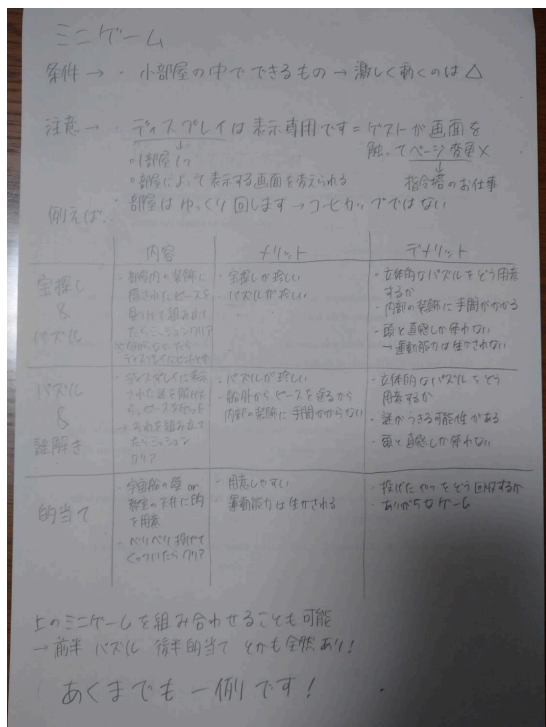 ミニゲーム
条件→・小部屋の中でできるもの→激しく動くのは△
注意→・ディスプレイは表示専用です=ゲストが画面を
触ってページ変更×
↓
指令塔のお仕事
↓
○1部屋1つ
○部屋によって表示する画面を変えられる
・部屋はゆっくり回します→コーヒーカップではない
例えば…
内容
メリット
デメリット
宝探し
&
パズル
・部屋内の装飾に
隠されたピースを
見つけて組み立て
たらミッションクリア
ディスプレイにヒントとか
・宝探しが珍しい
・パズルが珍しい
・立体的なパズルをどう用意
するか
・内部の装飾に手間がかかる
・頭と直感しか使わない
→運動能力は生かされない
パズル
&
謎解き
・ディスプレイに表示
された謎を解けた
ら、ピースをゲット
→それを組み立て
たらミッション
クリア
・パズルが珍しい
・船外からピースを送るから
内部の装飾に手間がかからない
・立体的なパズルをどう
用意するか
・謎がつきる可能性がある
・頭と直感しか使わない
的当て
・宇宙船の壁or
教室の天井に的
を用意
・ペリペリ投げて
くっついたらクリア
・用意しやすい
・運動能力は生かされる
・投げたやつをどう回収するか
・ありがちなゲーム
上のミニゲームを組み合わせることも可能
→前半パズル 後半的当て とかも全然あり!
あくまでも一例です!